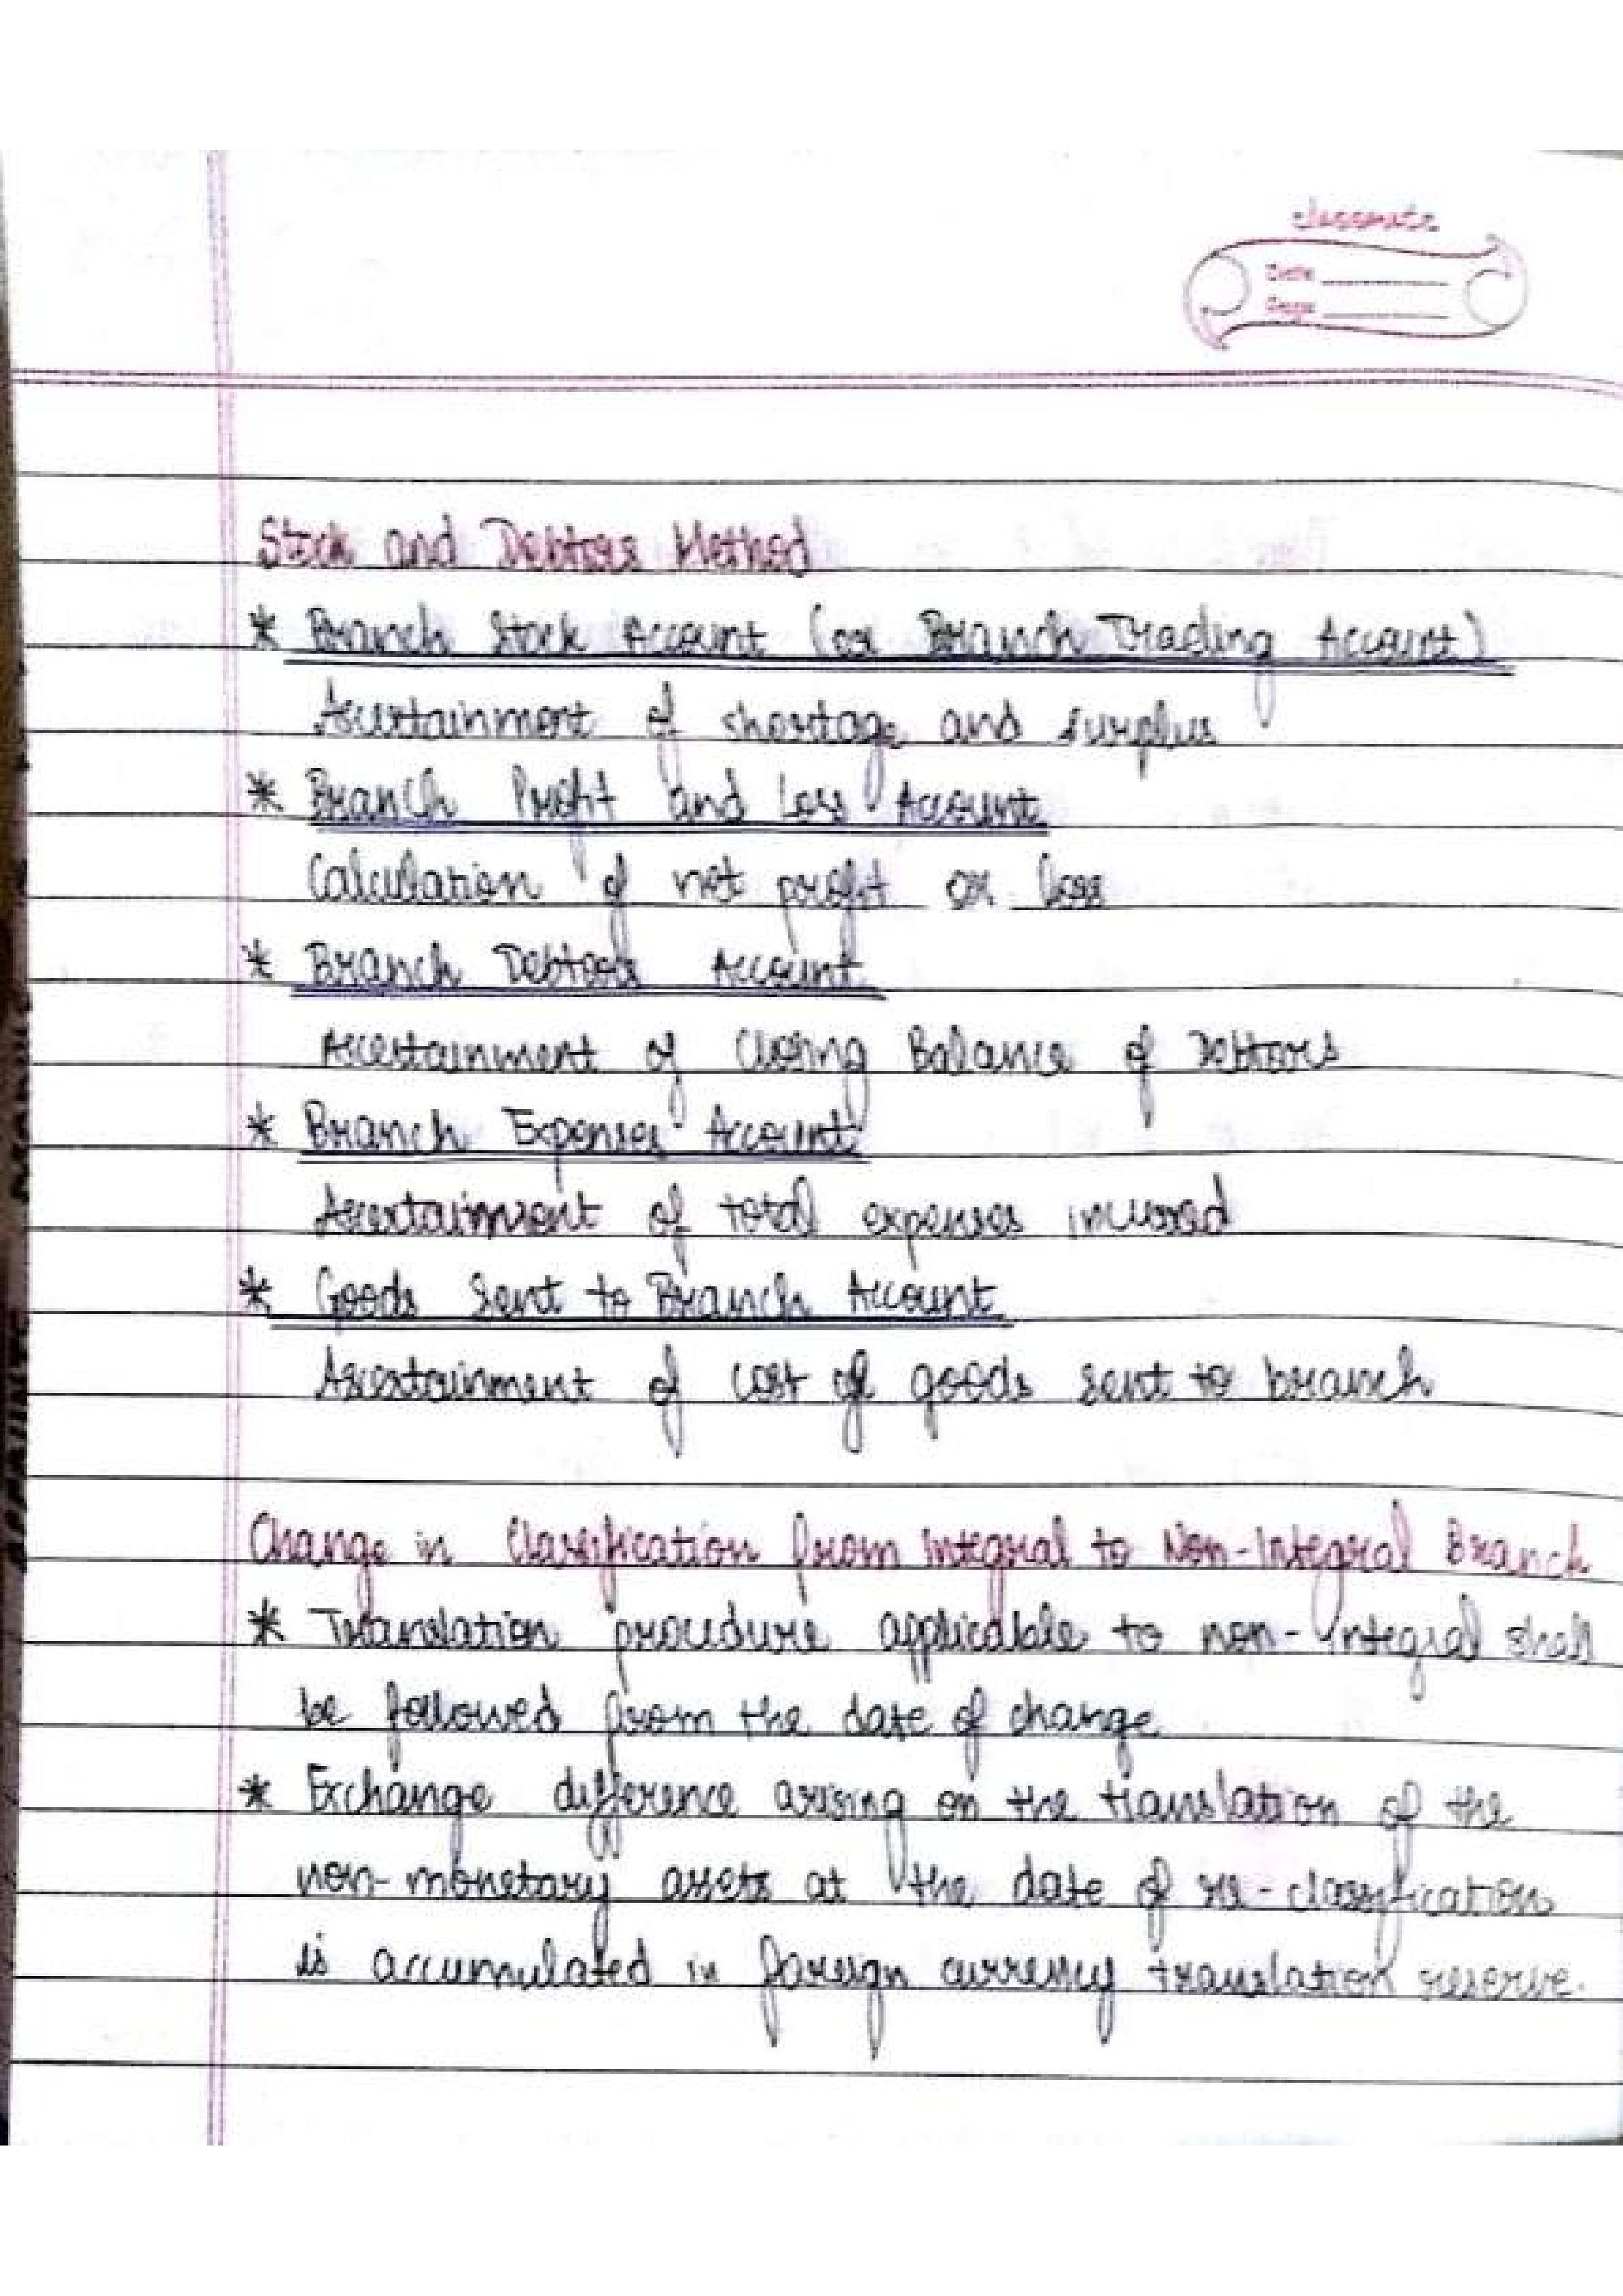 classmate
Date
Page
Stock and Debtors Method
* Branch Stock Account (or Branch Trading Account)
Ascertainment of shortage and surplus
* Branch Profit and Loss Account
Calculation of net profit or loss
* Branch Debtors Account
Ascertainment of Closing Balance of Debtors
* Branch Expenses Account
Ascertainment of total expenses incurred
* Goods Sent to Branch Account
Ascertainment of cost of goods sent to branch
Change in Classification from Integral to Non-Integral Branch
* Translation procedure applicable to non-integral shall
be followed from the date of change
* Exchange difference arising on the translation of the
non-monetary assets at the date of re-classification
is accumulated in foreign currency translation reserve.